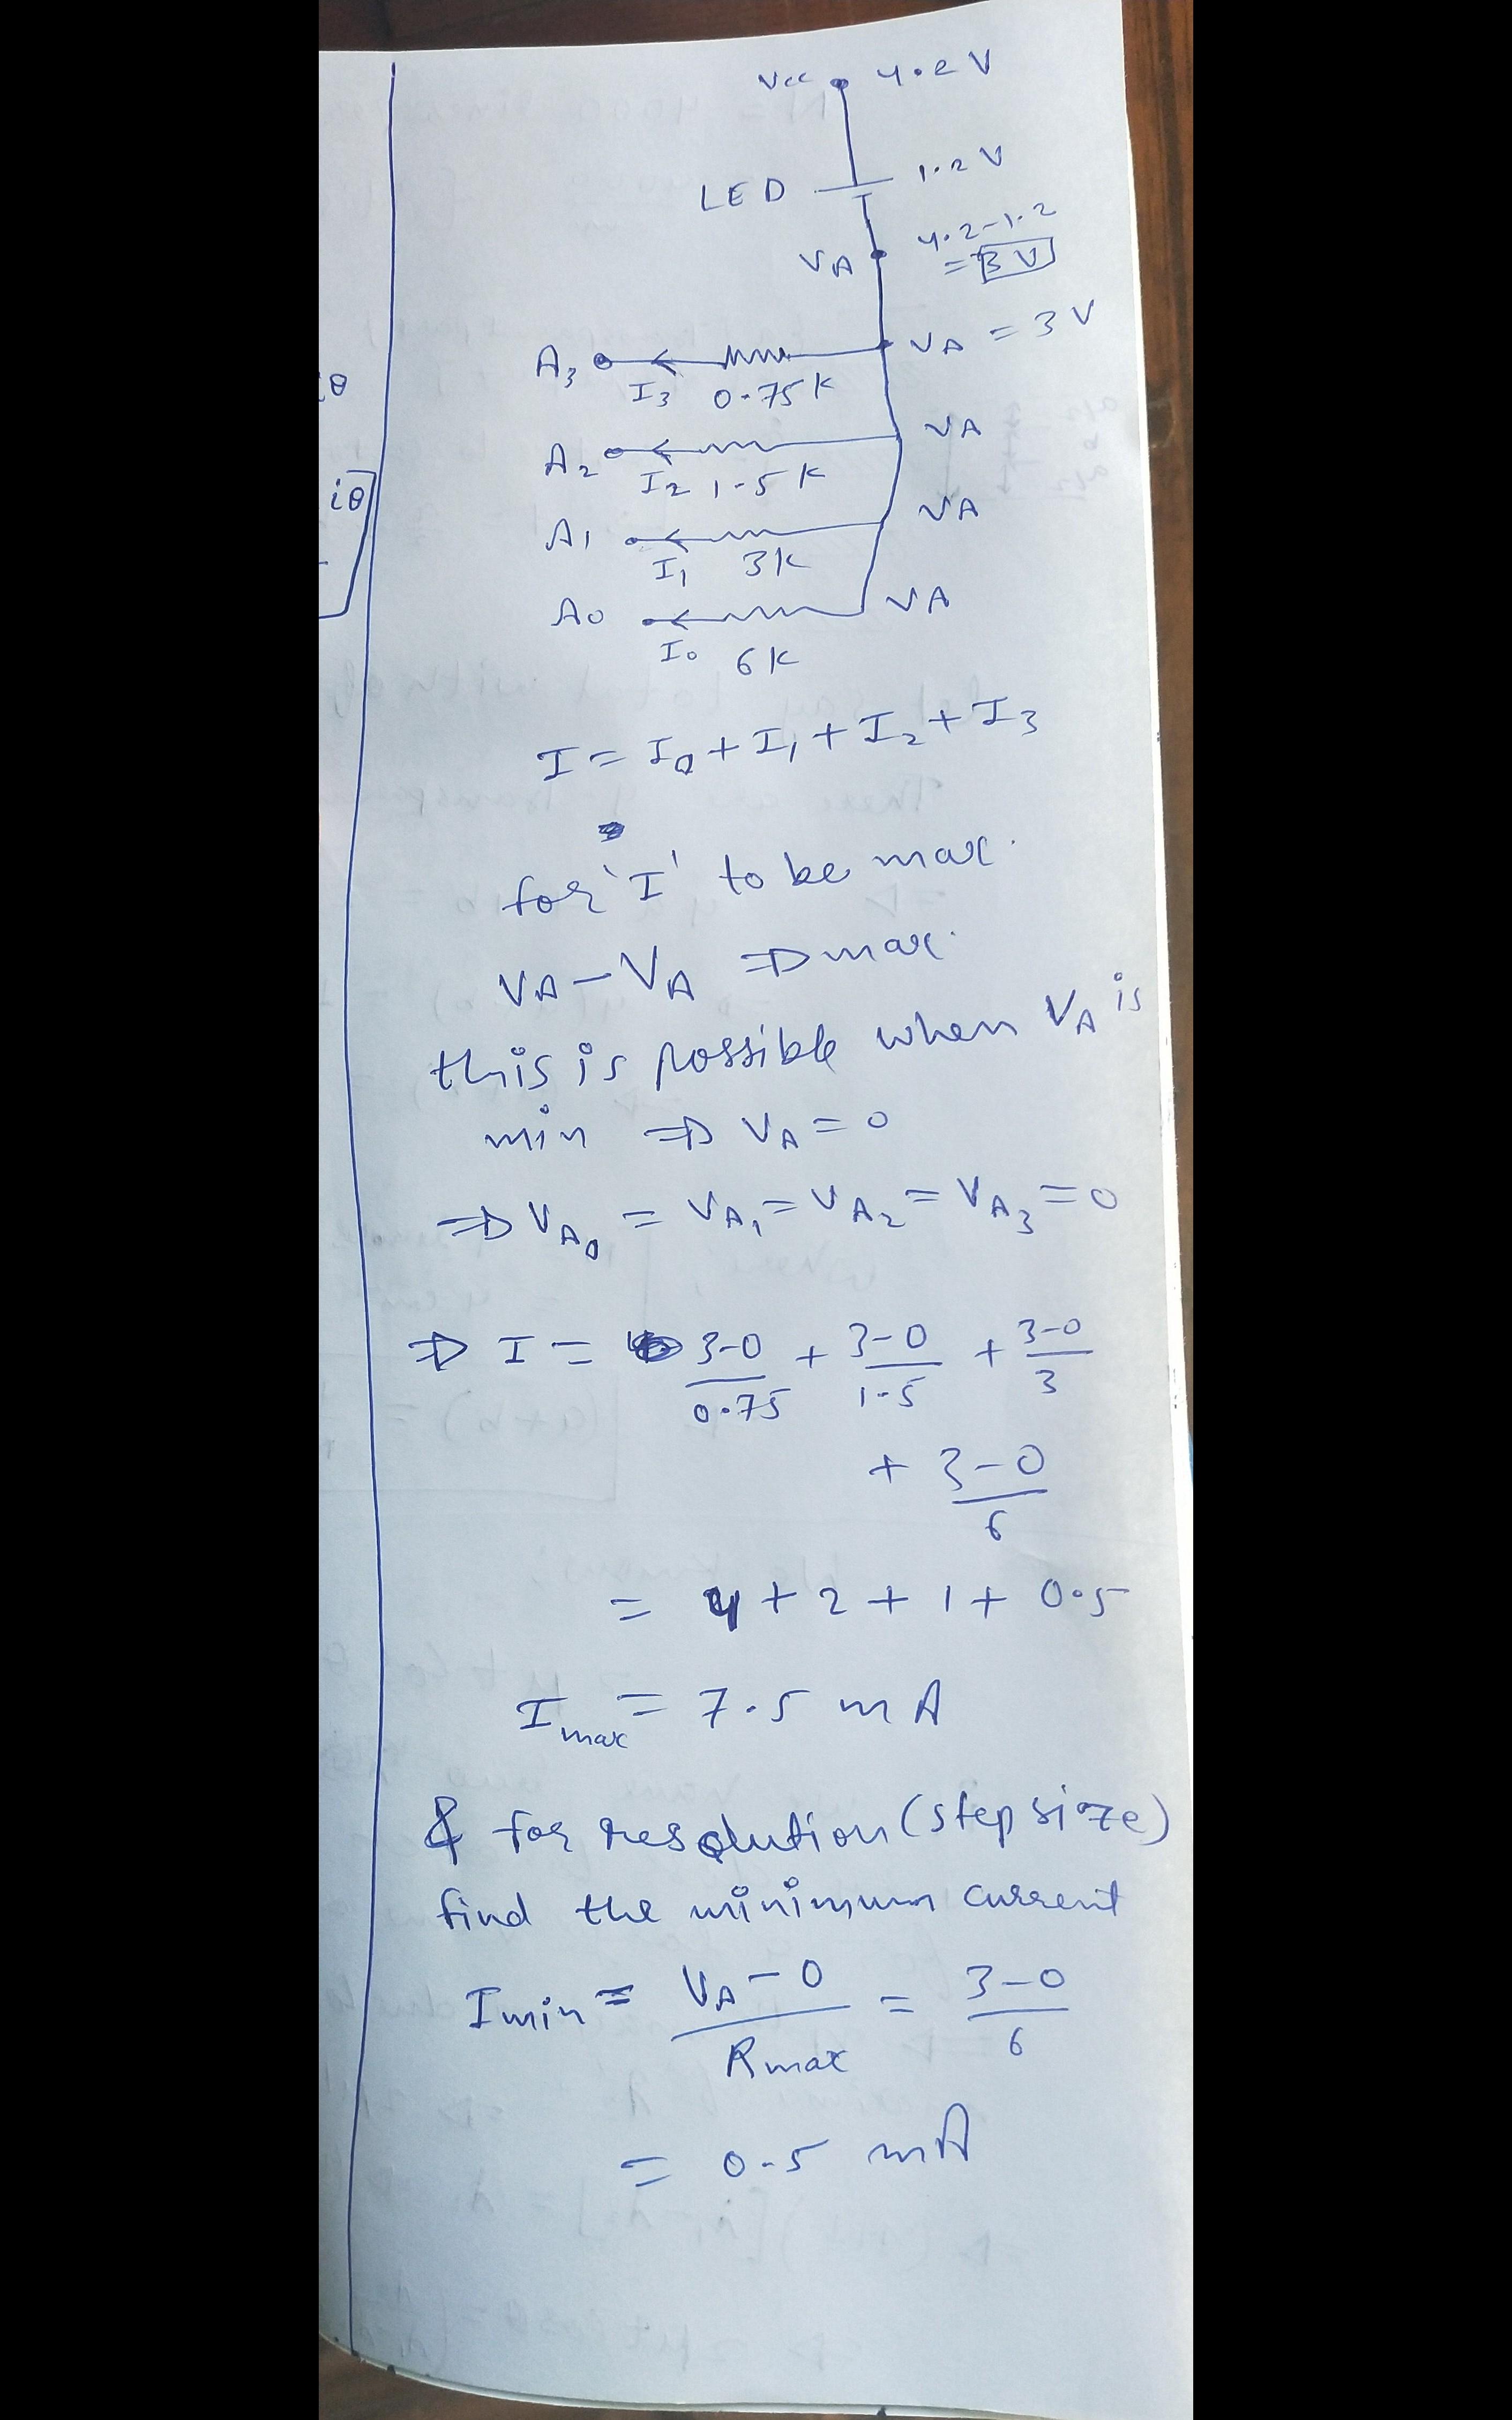 Vcc 4.2 V
LED 1.2 V
VA 4.2-1.2
= 3 V
VA = 3 V
A3 I3 0.75K
VA
A2 I2 1.5 K
VA
A1 I1 3K
A0 VA
I0 6K
I = I0 + I1 + I2 + I3
for 'I' to be max.
VA - VA ⇒ max.
this is possible when VA is
min ⇒ VA = 0
⇒ VA0 = VA1 = VA2 = VA3 = 0
⇒ I = 3-0/0.75 + 3-0/1.5 + 3-0/3
+ 3-0/6
= 4 + 2 + 1 + 0.5
Imax = 7.5 mA
& for resolution (step size)
find the minimum current
Imin = VA - 0/Rmax = 3-0/6
= 0.5 mA
iθ
iθ